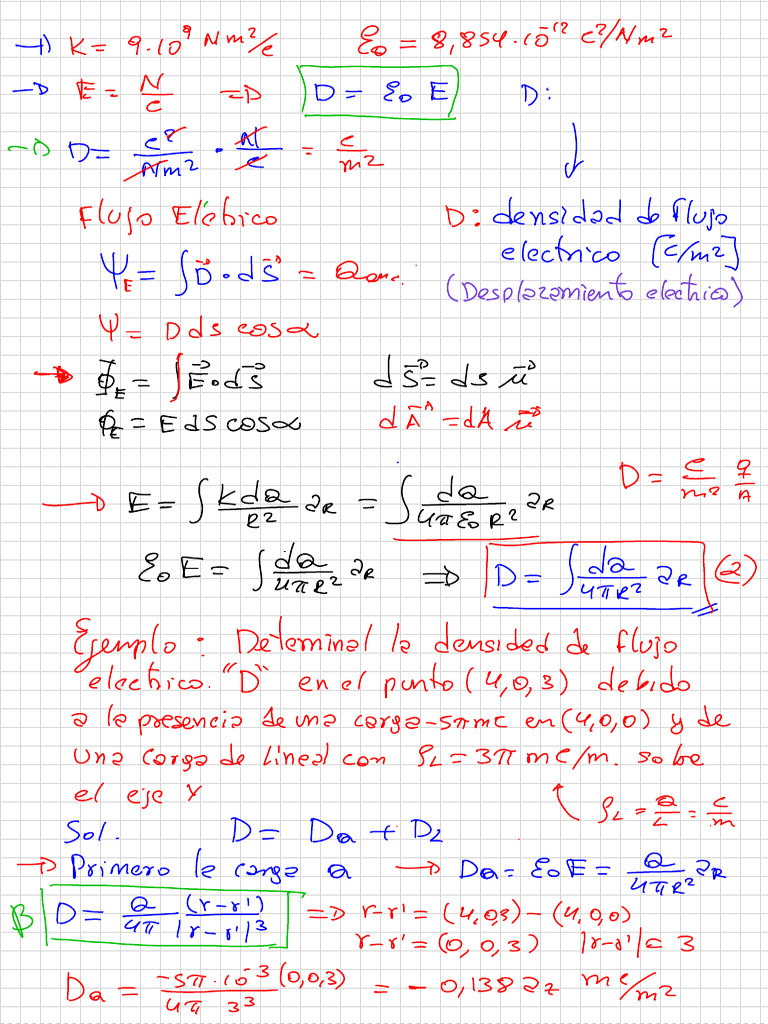 → K = 9·10⁹ Nm²/c ε₀ = 8,854·10⁻¹² c²/Nm²
→ E = N/c ⇒ D = ε₀ E D:
→ D = c²/Nm² · N/c = c/m²
Flujo Eléctrico D: densidad de flujo
electrico [c/m²]
Ψ_E = ∫D⃗·dS⃗ = Qenc. (Desplazamiento electrico)
Ψ = D ds cosα
→ Φ_E = ∫E⃗·dS⃗ dS⃗ = ds μ⃗
φ_E = E dS cosα dA⃗ = dA μ⃗
D = c/m² q/A
→ E = ∫ K dQ/R² aR = ∫ dQ/4πε₀R² aR
ε₀E = ∫ dQ/4πR² aR ⇒ D = ∫ dQ/4πR² aR (2)
Ejemplo: Determinal la densidad de flujo
electrico. "D" en el punto (4,0,3) debido
a la presencia de una carga -5πmc en (4,0,0) y de
una carga de lineal con ρL = 3π mc/m. sobe
el eje Y
ρL = Q/L = c/m
Sol. D = DQ + DL
→ Primero la carga Q → DQ = ε₀E = Q/4πR² aR
β D = Q/4π (r-r')/|r-r'|³ ⇒ r-r' = (4,0,3) - (4,0,0)
r-r' = (0,0,3) |r-r'| = 3
DQ = -5π·10⁻³/4π (0,0,3)/3³ = -0,138 az mc/m²